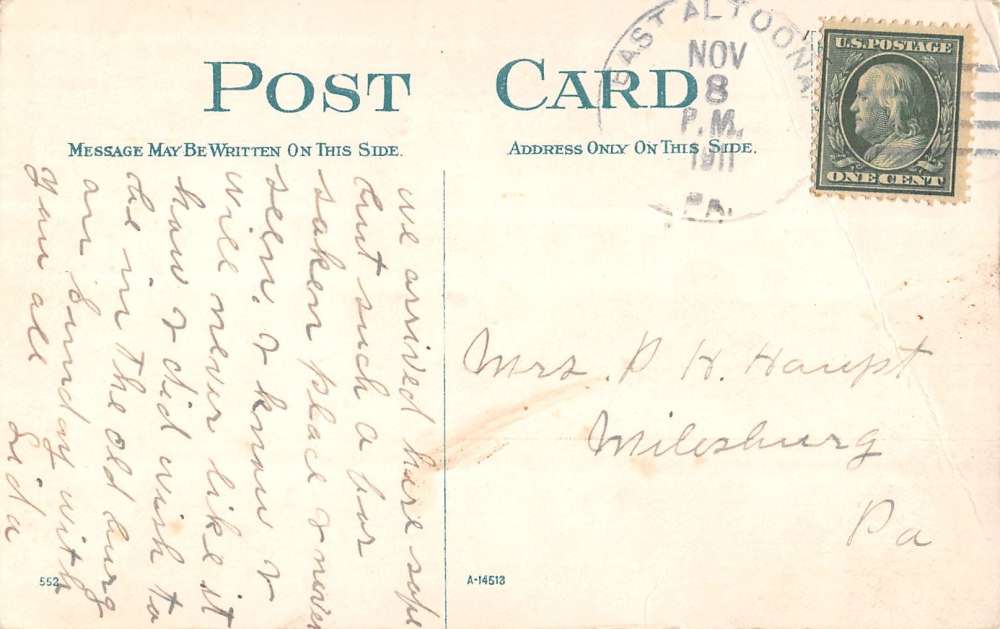 POST CARD
MESSAGE MAY BE WRITTEN ON THIS SIDE.
ADDRESS ONLY ON THIS SIDE.
EAST ALTOONA
NOV
8
P.M.
1911
PA.
U.S. POSTAGE
ONE CENT
we arrived here safe
but such a for
saken place I never
seen. & know I
will never like it
how I did wish to
be in the old burg
on Sunday with
you all
Lida
Mrs. P H. Haupt
Milesburg
Pa
552
A-14513